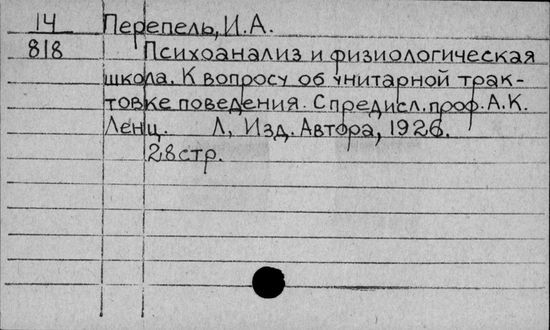 14 Перепель, И.А.
818 Психоанализ и физиологическая
школа. К вопросу об унитарной трак-
товке поведения. С предисл. проф. А.К.
Ленц. Л, Изд. Автора, 1926.
28 стр.